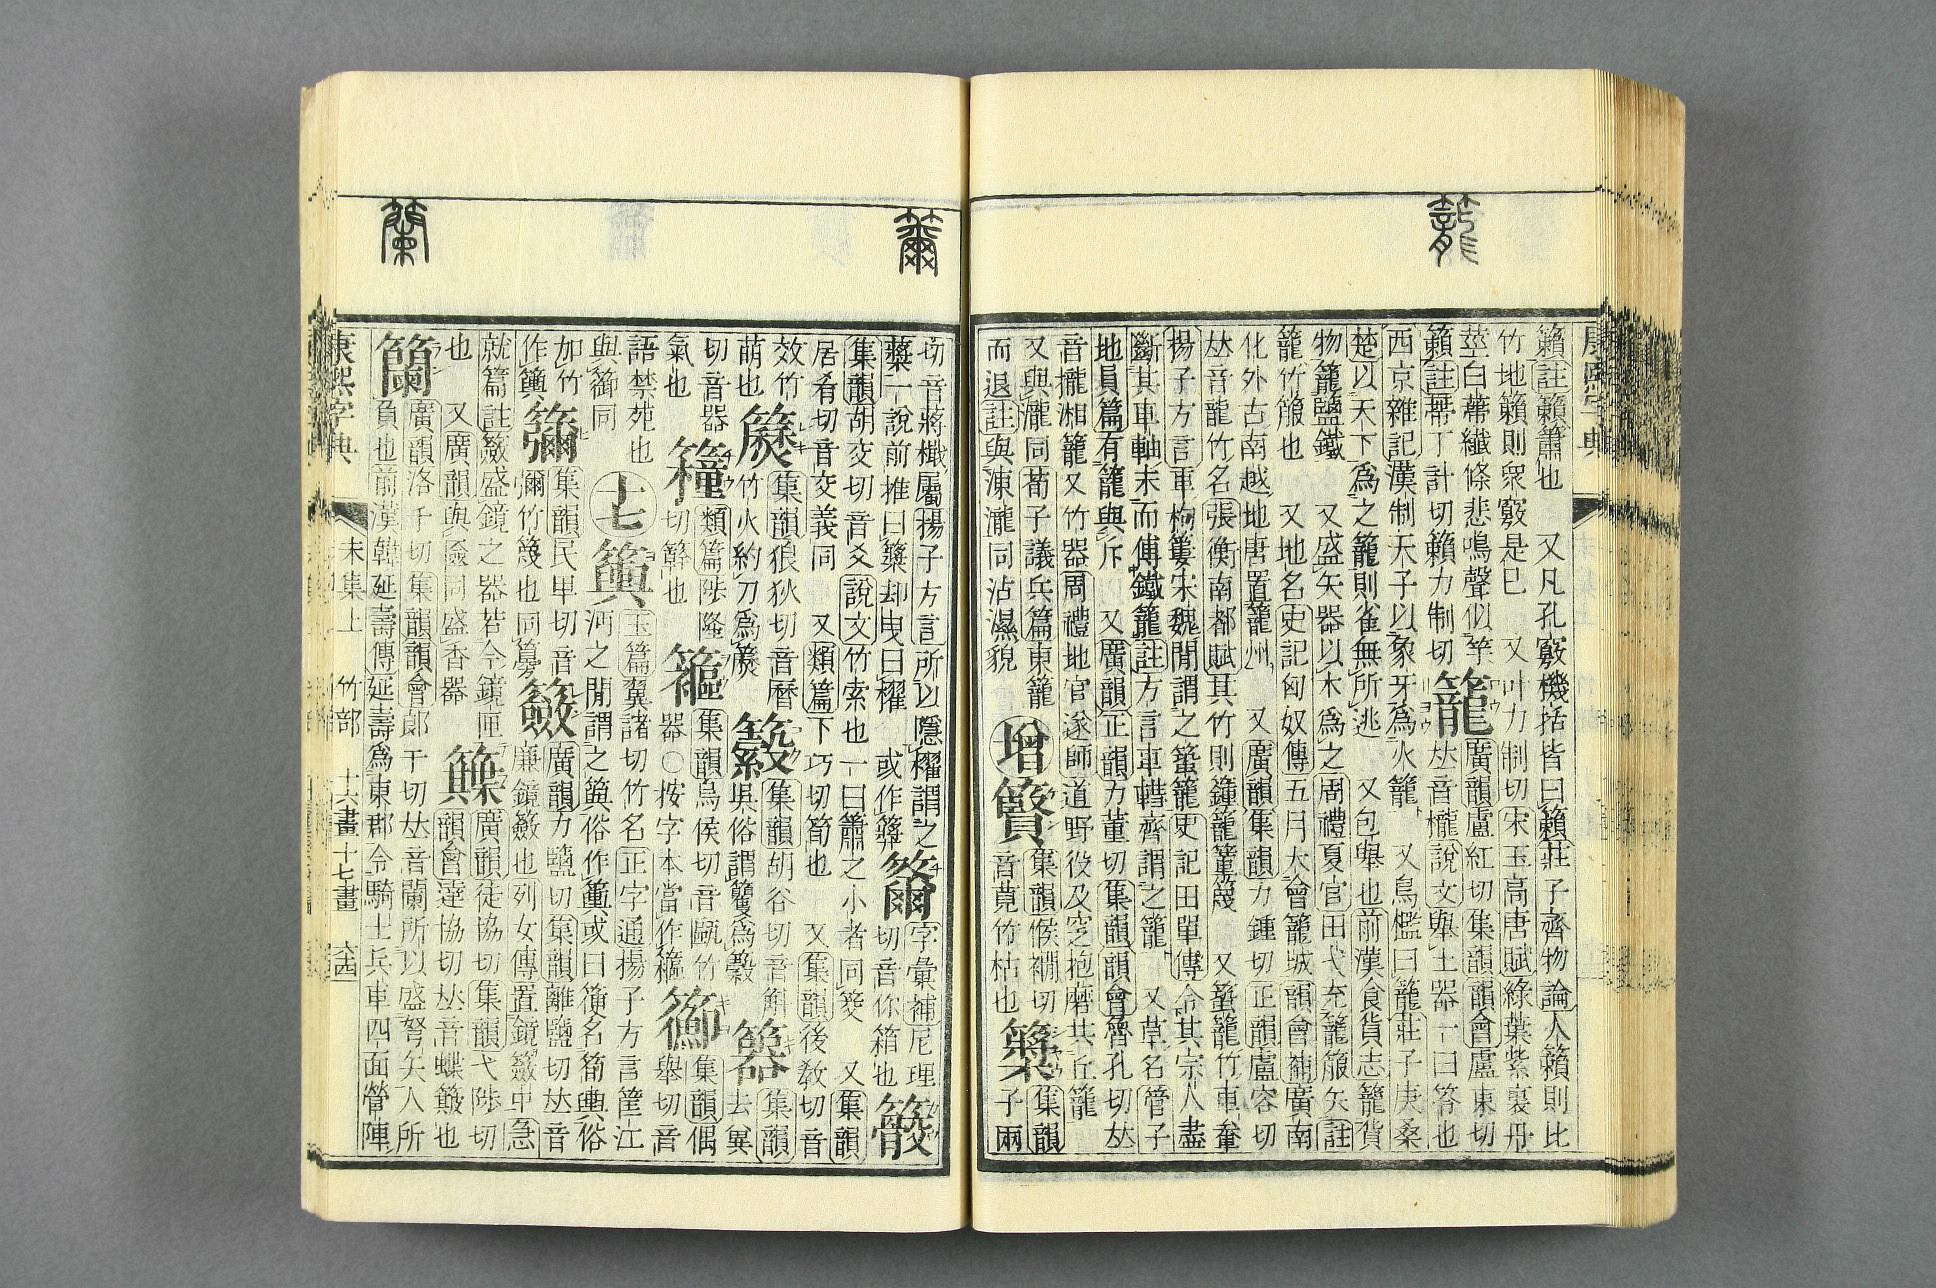 龍
籟註籟簫也 又凡孔竅機括皆曰籟莊子齊物論人籟則比
竹地籟則衆竅是已 又叶力制切宋玉高唐賦綠葉紫裏丹
莖白蔕纖條悲鳴聲似竽
籟註蔕丁計切籟力制切
籠
廣韻盧紅切集韻韻會盧東切
𠀤音櫳說文舉土器一曰笭也
西京雜記漢制天子以象牙爲火籠 又鳥檻曰籠莊子庚桑
楚以天下爲之籠則雀無所逃 又包舉也前漢食貨志籠貨
物籠鹽鐵 又盛矢器以木爲之周禮夏官田弋充籠箙矢註
籠竹箙也 又地名史記匈奴傳五月大會籠城韻會補廣南
化外古南越地唐置籠州 又廣韻集韻力鍾切正韻盧容切
𠀤音龍竹名張衡南都賦其竹則鍾籠篁篾 又篢籠竹車軬
揚子方言車枸簍宋魏閒謂之篢籠史記田單傳令其宗人盡
斷其車軸末而傅鐵籠註方言車轊齊謂之籠 又草名管子
地員篇有籠與斥 又廣韻正韻力董切集韻韻會魯孔切𠀤
音攏湘籠又竹器周禮地官遂師道野役及窆抱磨共丘籠
又與瀧同荀子議兵篇東籠
而退註與涷瀧同沾濕貌
增
集韻侯襉切
音莧竹枯也
集韻
子兩
康熙字典
切音蔣檝屬揚子方言所以隱櫂謂之
籆一說前推曰籆却曳曰櫂 或作簝
字彙補尼理
切音你箱也
集韻胡交切音爻說文竹索也一曰簫之小者同筊 又集韻
居肴切音交義同 又類篇下巧切筍也 又集韻後敎切音
效竹
萌也
集韻狼狄切音曆
竹火約刀爲
集韻胡谷切音斛
吳俗謂籰爲
集韻
去異
切音器
氣也
類篇陟隆
切簳也
集韻烏侯切音甌竹
器○按字本當作簍
集韻偶
舉切音
語禁苑也
與篽同
十七
玉篇翼諸切竹名正字通揚子方言筐江
沔之閒謂之籅俗作籅或曰䉛名筥輿俗
加竹
作籅
集韻民卑切音
彌竹篾也同
籢
廣韻力鹽切集韻離鹽切𠀤音
廉鏡籢也列女傳置鏡籢中急
就篇註籢盛鏡之器若今鏡匣
也 又廣韻與匳同盛香器
廣韻徒協切集韻弋涉切
韻會達協切𠀤音蝶簸也
籣
廣韻落干切集韻韻會郎干切𠀤音蘭所以盛弩矢人所
負也前漢韓延壽傳延壽爲東郡令騎士兵車四面營陣
康熙字典 未集上 竹部 十六畫十七畫 六四